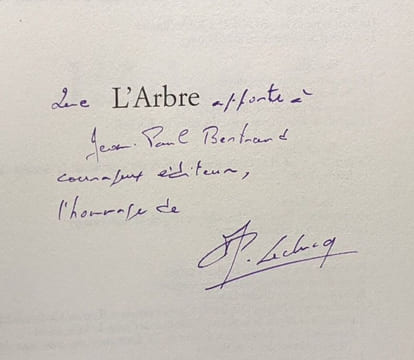 Que L'Arbre apporte à
Jean-Paul Bertrand
courageux éditeur,
l'hommage de
JP. Leclercq